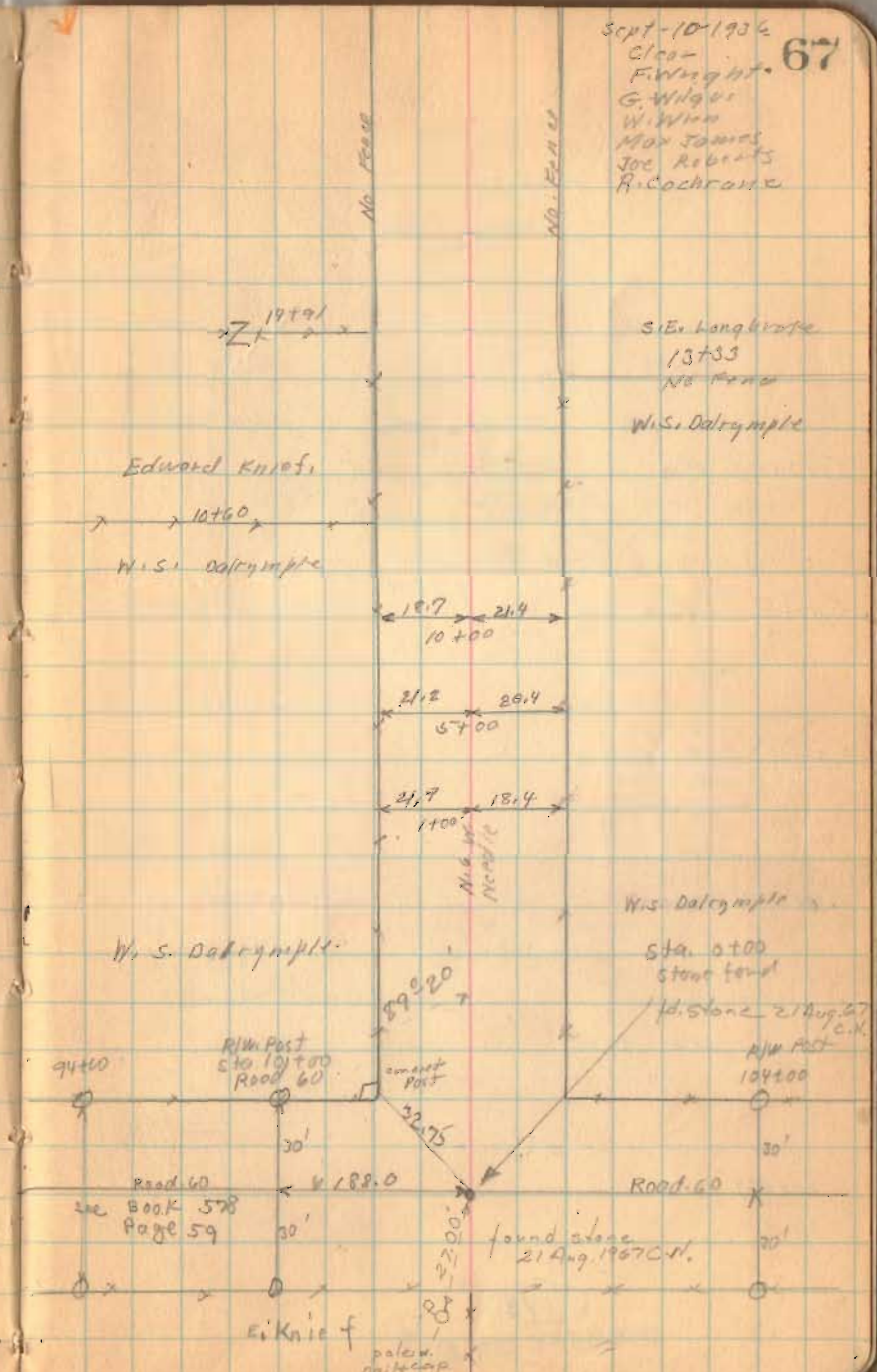 67
Sept-10-1936
Clear
F. Wright.
G. Wilgus
W. Winn
Max James
Joe Roberts
R. Cochrane
No Fence
No. Fence
19+91
S.E. Longbrake
13+33
No Fence
W.S. Dalrymple
Edward Knief.
10+60
W.S. Dalrymple
18.7 21.4
10+00
21.2 20.4
5+00
21.7 18.4
1+00
Needle
W.S. Dalrymple
W. S. Dalrymple.
Sta. 0+00
Stone found
fd. Stone 21 Aug. 67
C.N.
89°20'
R/W. Post
Sta 101+00
Road 60
94+00
concret
Post
R/W Post
104+00
32.75
30'
30'
Road 60
188.0
Road 60
see Book 578
Page 59
30'
30'
found stone
21 Aug. 1967 C.N.
22.00'
E. Knief